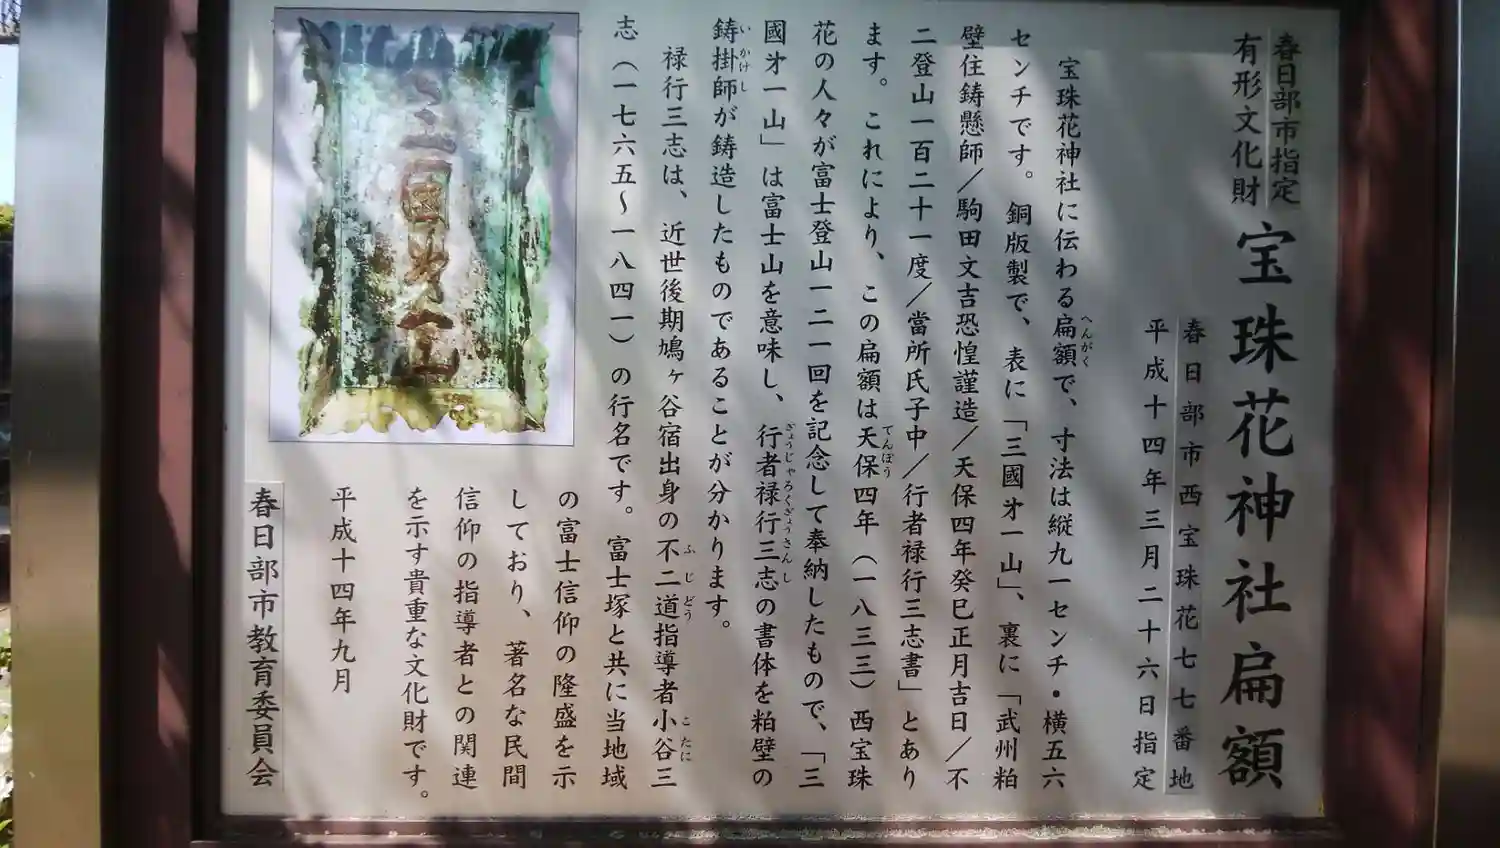 春日部市指定
有形文化財
宝珠花神社扁額
春日部市西宝珠花七七番地
平成十四年三月二十六日指定
宝珠花神社に伝わる扁額で、寸法は縦九一センチ・横五六
へんがく
センチです。銅版製で、表に「三國㐧一山」、裏に「武州粕
壁住鋳懸師／駒田文吉恐惶謹造／天保四年癸巳正月吉日／不
二登山一百二十一度／當所氏子中／行者禄行三志書」とあり
ます。これにより、この扁額は天保四年（一八三三）西宝珠
てんぽう
花の人々が富士登山一二一回を記念して奉納したもので、「三
國㐧一山」は富士山を意味し、行者禄行三志の書体を粕壁の
ぎょうじゃろくぎょうさんし
鋳掛師が鋳造したものであることが分かります。
いかけし
禄行三志は、近世後期鳩ヶ谷宿出身の不二道指導者小谷三
ふじどう
こたに
志（一七六五〜一八四一）の行名です。富士塚と共に当地域
の富士信仰の隆盛を示
しており、著名な民間
信仰の指導者との関連
を示す貴重な文化財です。
平成十四年九月
春日部市教育委員会
三國㐧一山